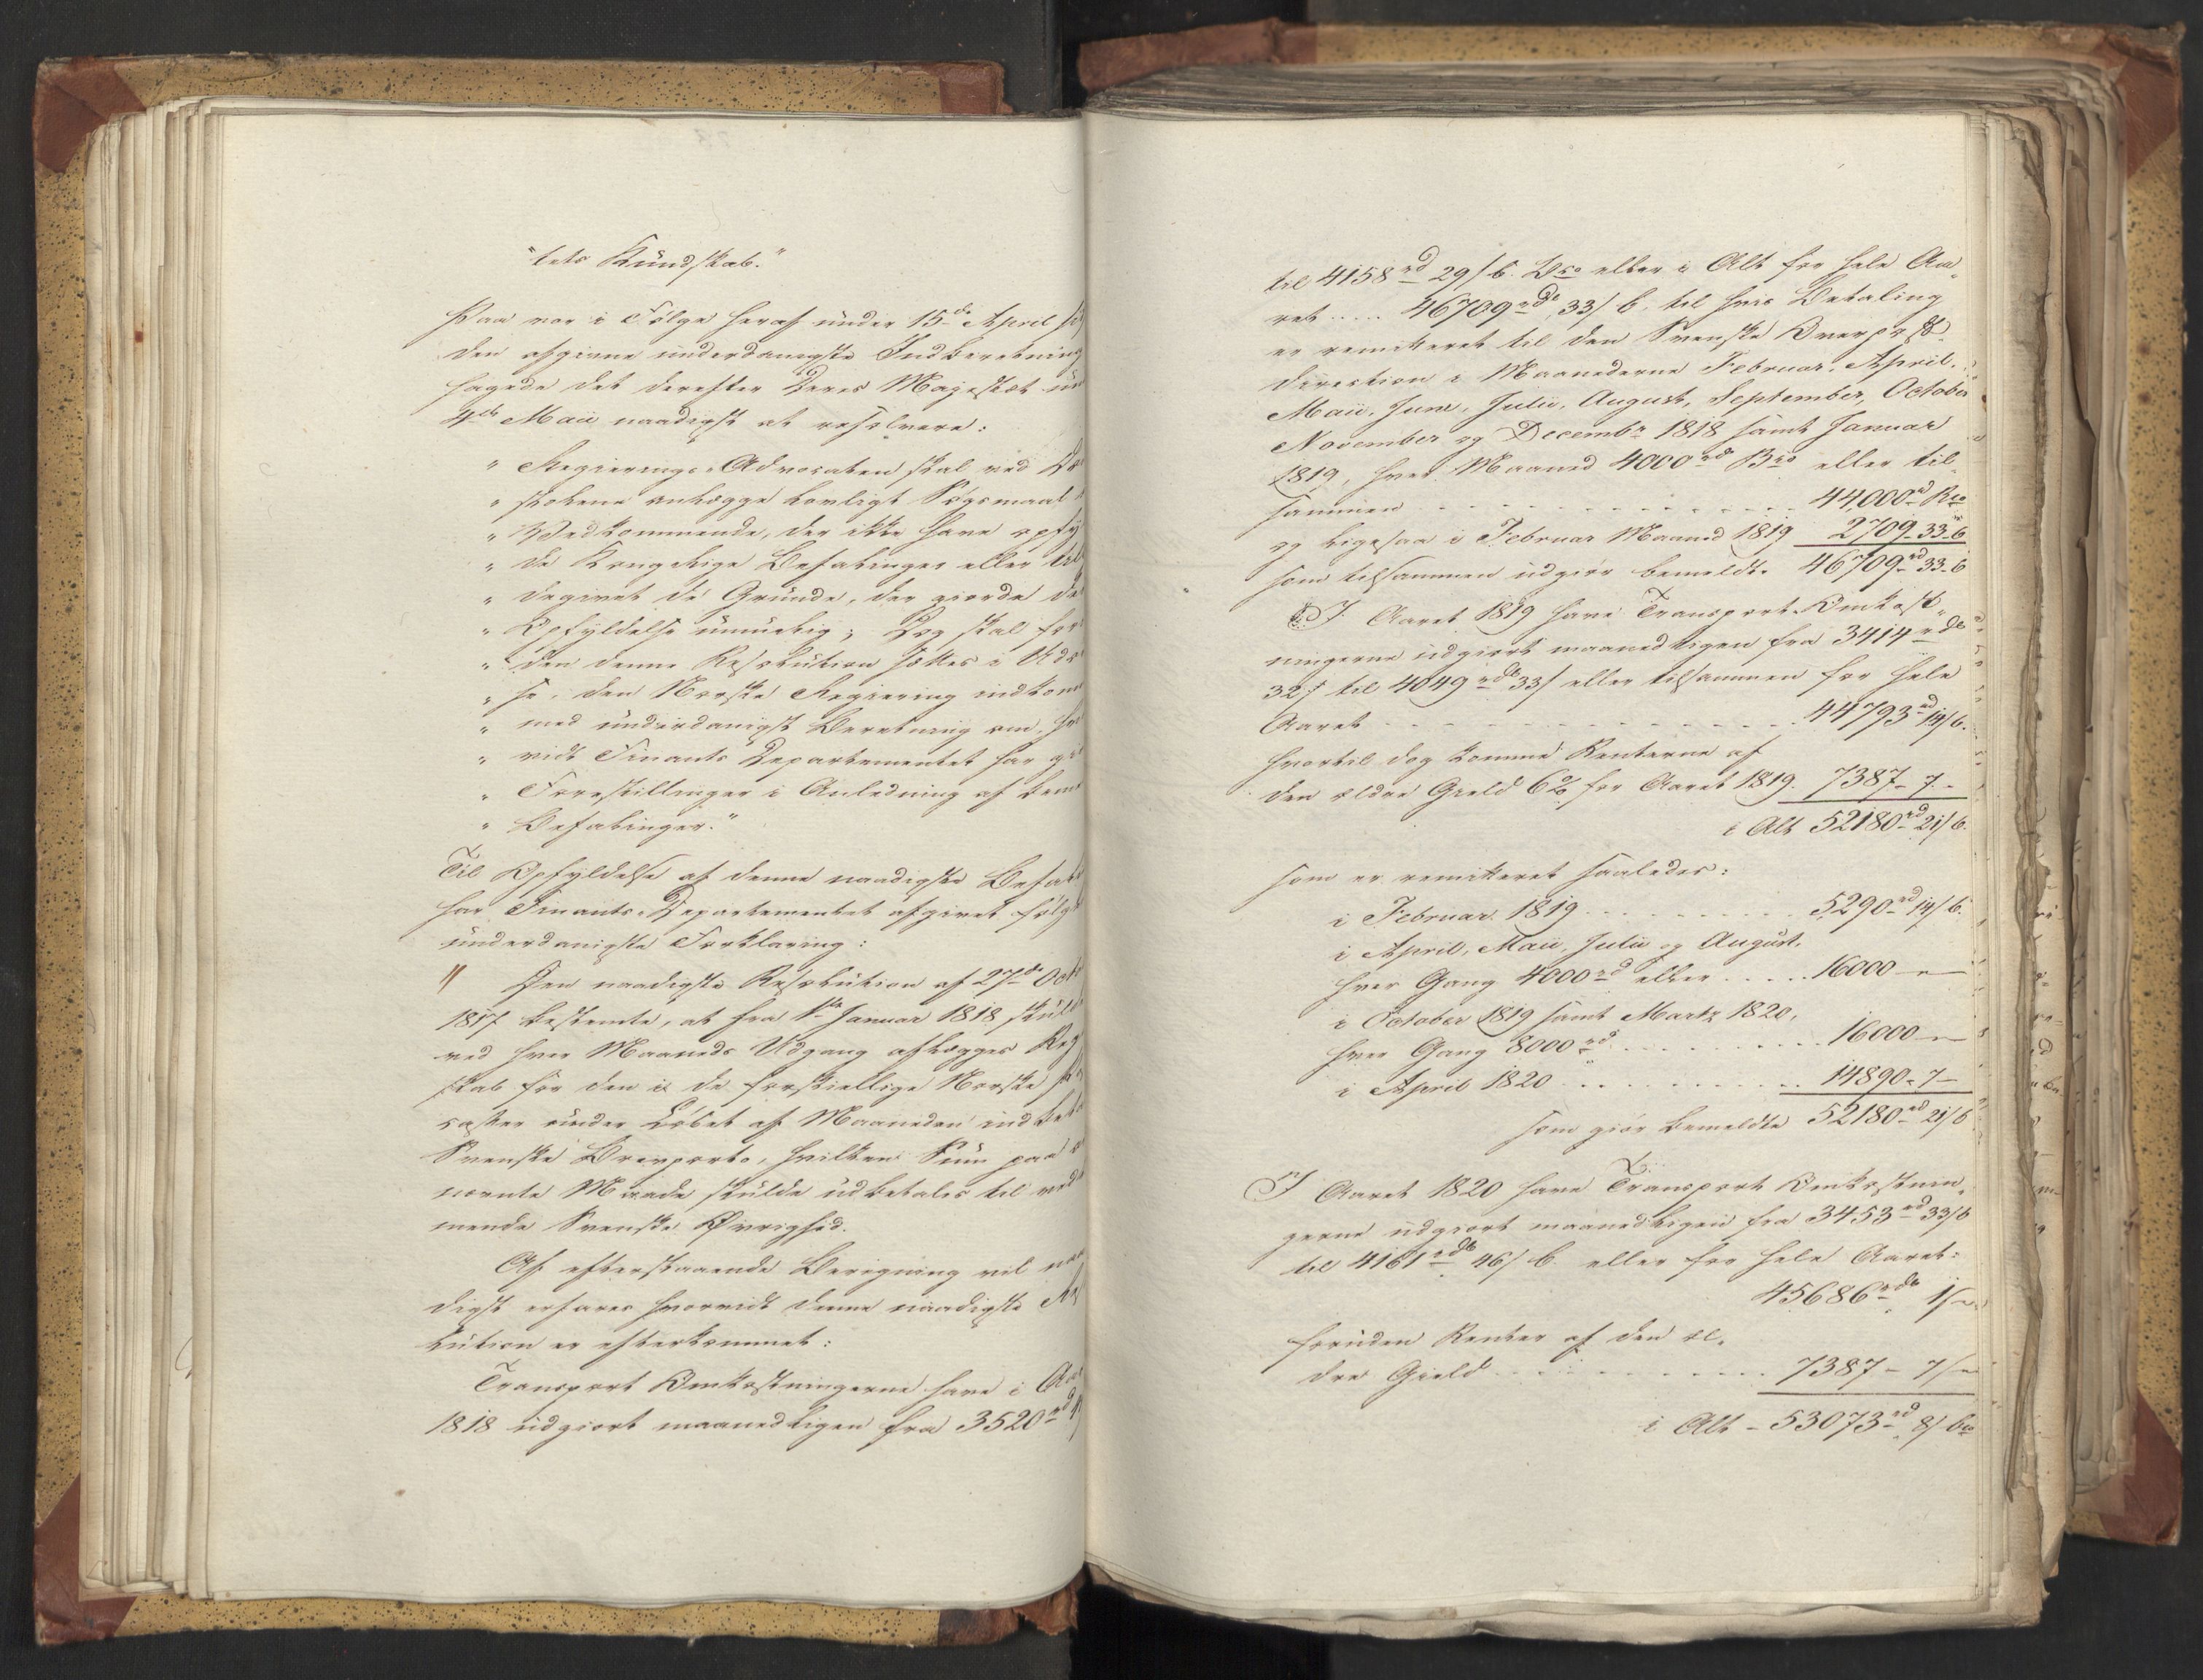 "tets Kundskab."
Paa en i Følge heraf under 15de April
den afgivne underdanigste Indberetning
hagede det derefter Deres Majestæt
4de Maii naadigst at resolvere:
" Regierings-Advocaten skal ved
" stolene anlægge lovligt Søgsmaal
" Vedkommende, der ikke have
" de Kongelige Befalinger eller
" degivet de Grunde, der giorde
" Opfyldelse umuelig; Dog skal
" den denne Resolution sættes i
" se, den Norske Regiering
" med underdanigst Beretning om,
" vidt Finants Departementet har
" Forestillinger i Anledning af
" Befalinger."
Til Opfyldelse af denne naadigste
har Finants-Departementet afgivet
underdanigste Forklaring:
" Den naadigste Resolution af 27de
1817 bestemte, at fra 1ste Januar 1818
ved hver Maaneds Udgang aflægges
skab for den i de forskiellige Norske
caster under Løbet af Maaneden
Svenske Brevporto, hvilken Sum paa
nævnte Maade skulde udbetales til
mende Svenske Øvrighed.
Af efterstaaende Beregning vil
digst erfares hvorvidt denne naadigste
lution er efterkommet:
Transport Omkostningerne have i
1818 udgiort maanedligen fra 3520rd
til 4158rd 29/ b. eller i Alt for hele Aa-
ret .... 46709rdr 33/ b. til hvis Betaling
er remitteret til den Svenske Overpost-
direction i Maanederne Februar, April,
Maii, Juni, Julii, August, September, October
November og Decembr 1818 samt Januar
1819, hver Maaned 4000rd Bco eller til-
sammen . . . . 44,000rd Bco
og ligesaa i Februar Maaned 1819 2709-33-6
som tilsammen udgiør bemeldte 46709rd 33-6
I Aaret 1819 have Transport-Omkost-
ningerne udgiort maanedligen fra 3414rdr
32/ til 4049rdr 33/ eller tilsammen for hele
Aaret . . . . 44793rd 14/ b.
hvortil dog komme Renterne af
den ældre Gield 6% for Aaret 1819. 7387 - 7 -
i Alt 52180rd 21/ b.
som er remitteret saaledes:
i Februar 1819 . . . . 5290rd 14/ b.
i April, Maii, Julii og August,
hver Gang 4000rd eller . . . . 16000 -
i October 1819 samt Martz 1820,
hver Gang 8000rd . . . . 16000 -
i April 1820 . . . . 14890 - 7 -
som giør bemeldte 52180rd 21/ b
I Aaret 1820 have Transport Omkostnin-
gerne udgiort maanedligen fra 3453rd 33/ b
til 4161rdr 46/ b. eller for hele Aaret:
45686rdr 1/
foruden Renter af den æl-
dre Gield . . . . 7387 - 7/
i Alt - 53073rd 8/ bco